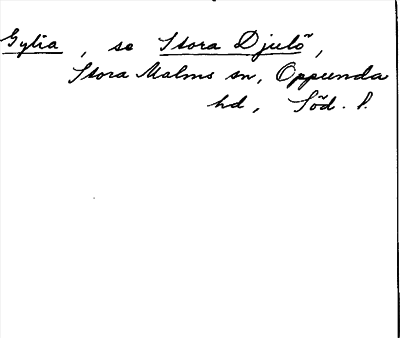 Gylia, se Stora Djulö,
Stora Malms sn, Oppunda
hd, Söd. l.